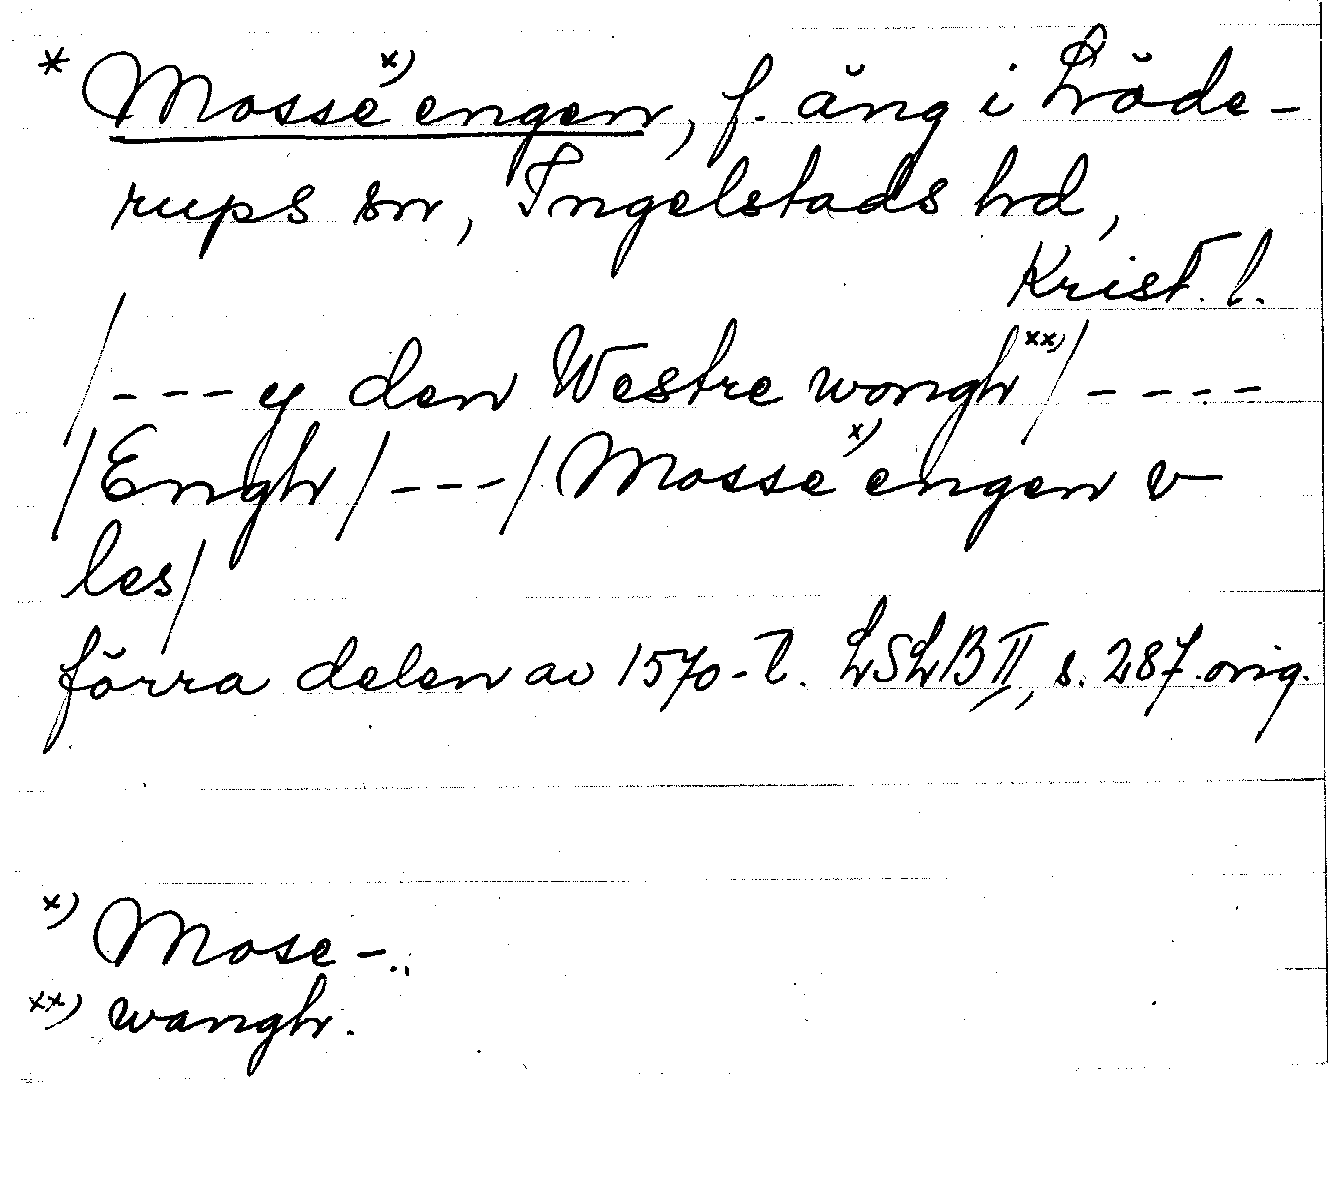 * Mosse x) engen, f. äng i Löde-
rups sn, Ingelstads hd,
Krist. l.
/---y den Westre wongh xx)/ ----
/Engh/---/Mosse x) engen v
les/
förra delen av 1570-t. LSLB II, s. 287. orig.
x) Mose-..
xx) wangh.